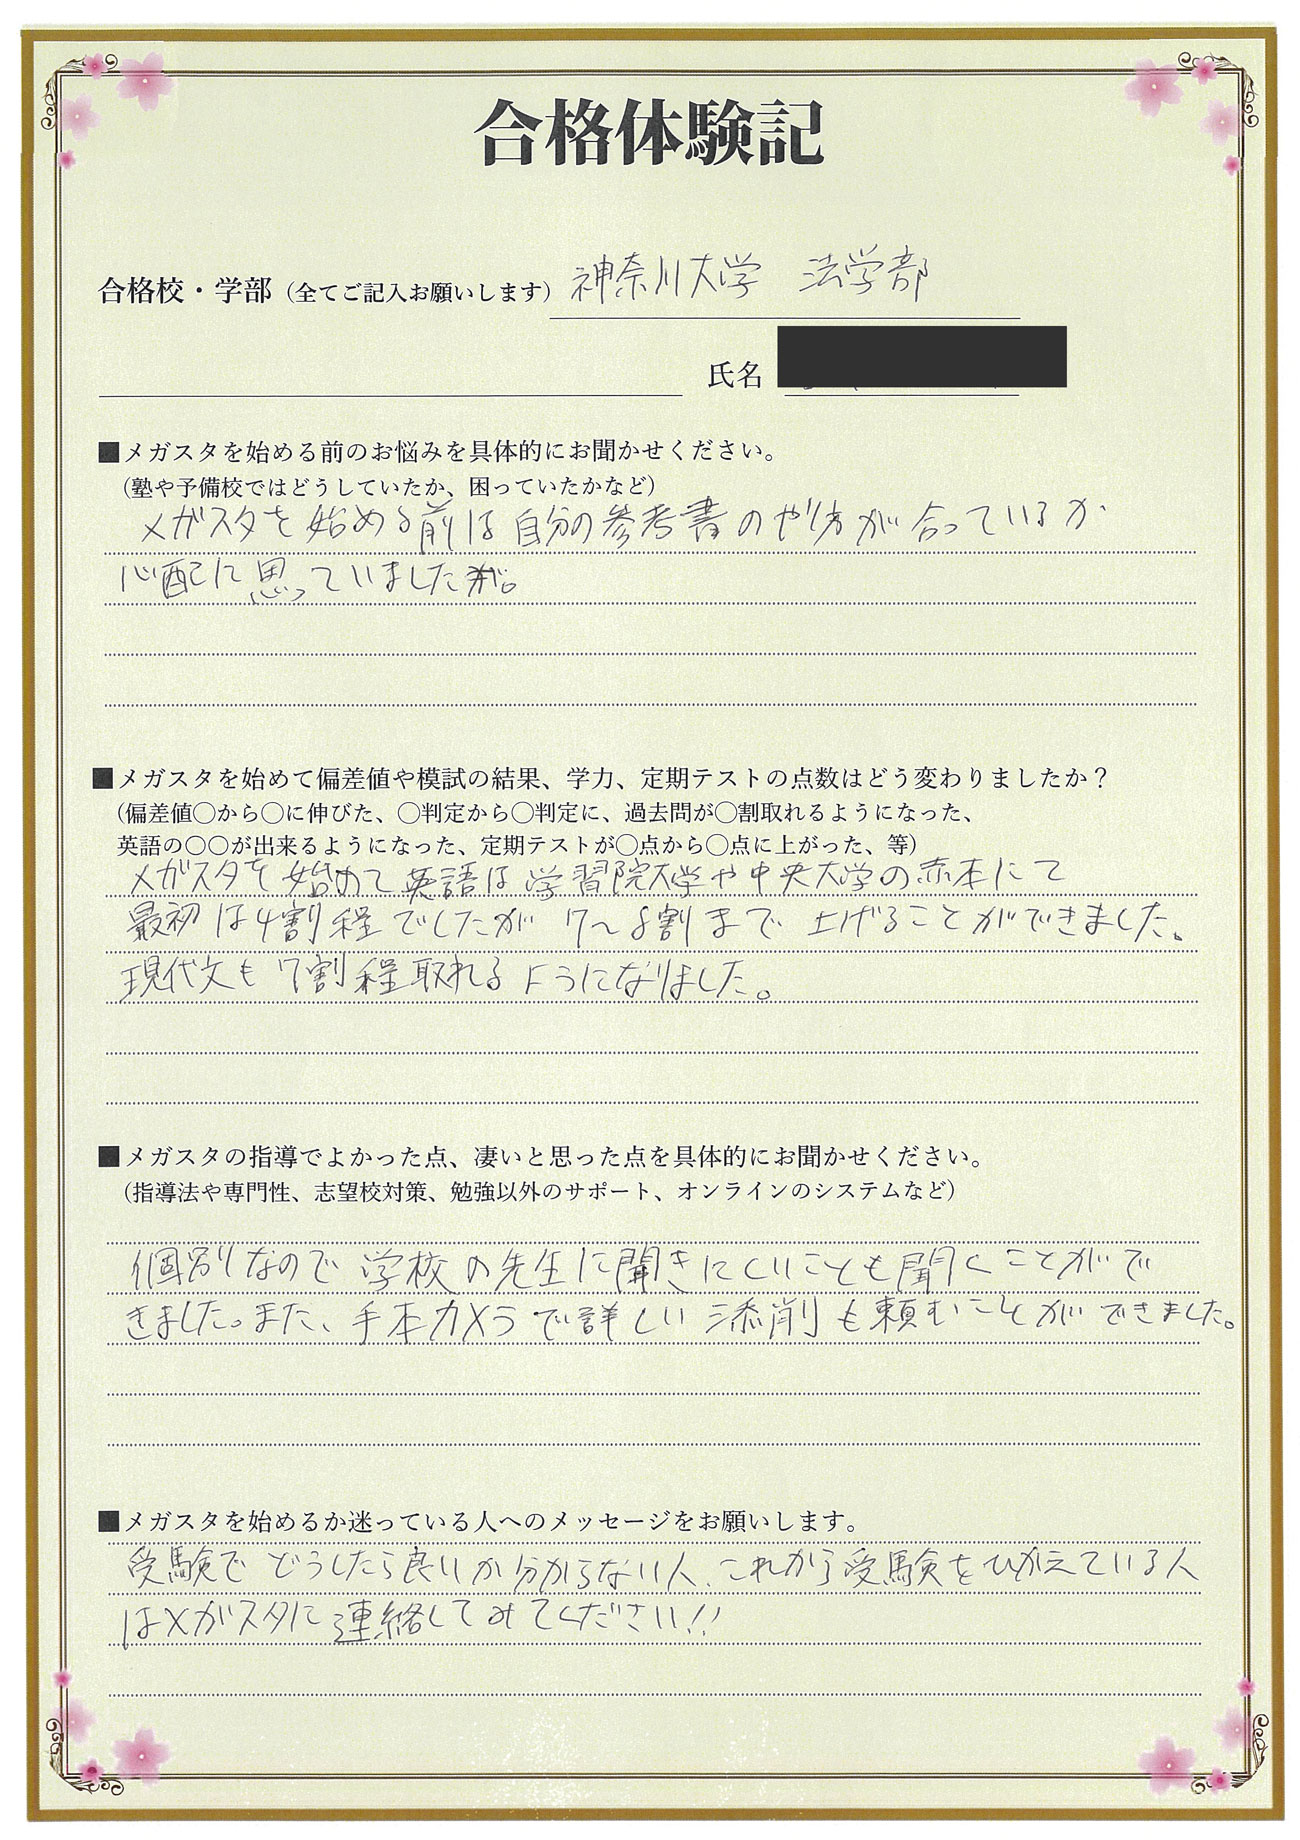 合格体験記
合格校・学部（全てご記入お願いします） 神奈川大学 法学部
氏名
■メガスタを始める前のお悩みを具体的にお聞かせください。
（塾や予備校ではどうしていたか、困っていたかなど）
メガスタを始める前は自分の参考書のやり方が合っているか
心配に思っていました。
■メガスタを始めて偏差値や模試の結果、学力、定期テストの点数はどう変わりましたか？
（偏差値〇から〇に伸びた、〇判定から〇判定に、過去問が〇割取れるようになった、
英語の〇〇が出来るようになった、定期テストが〇点から〇点に上がった、等）
メガスタを始めて英語は学習院大学や中央大学の赤本にて
最初は4割程でしたが 7〜8割まで上げることができました。
現代文も7割程取れるようになりました。
■メガスタの指導でよかった点、凄いと思った点を具体的にお聞かせください。
（指導法や専門性、志望校対策、勉強以外のサポート、オンラインのシステムなど）
個別なので学校の先生に聞きにくいことも聞くことがで
きました。また、手本カメラで詳しい添削も頼むことができました。
■メガスタを始めるか迷っている人へのメッセージをお願いします。
受験でどうしたら良いか分からない人、これから受験をひかえている人
はメガスタに連絡してみてください!!